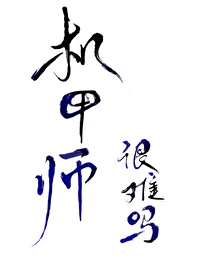 机甲师
很难吗